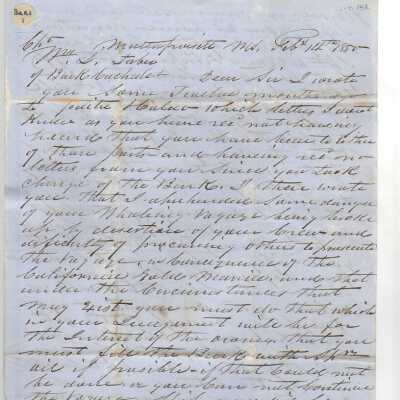 Bark
Mattapoisett Ms. Feby 14th 1850
Capt Wm T. Faber
of Bark Cachalot Dear Sir I wrote
you some Twelve months ago
to which letters I do not
know as you have recd not having
heard that you have been to either
of those ports and having recd no
letters from you since you took
charge of the Bark. I then wrote
you that I apprehended some danger
of your Whaleing Voyage being broke
up by desertion of your Crew and
dificulty of procureing others to prosecute
the Voyage, in Consequence of the
California Gold Mania. and that
under the Circumstances that
may exist you must do that which
in your Judgment will be for
the Interest of the owners that you
must fill the Bark with Spm
oil if possible if that Could not
be done or you Can not Continue
the Voyage